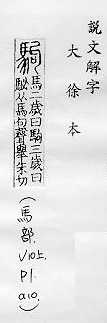 説文解字
大徐本
駒 馬二歲曰駒三歲曰
駣从馬句聲舉朱切
(馬部.
V10上.
P1.
a10.)